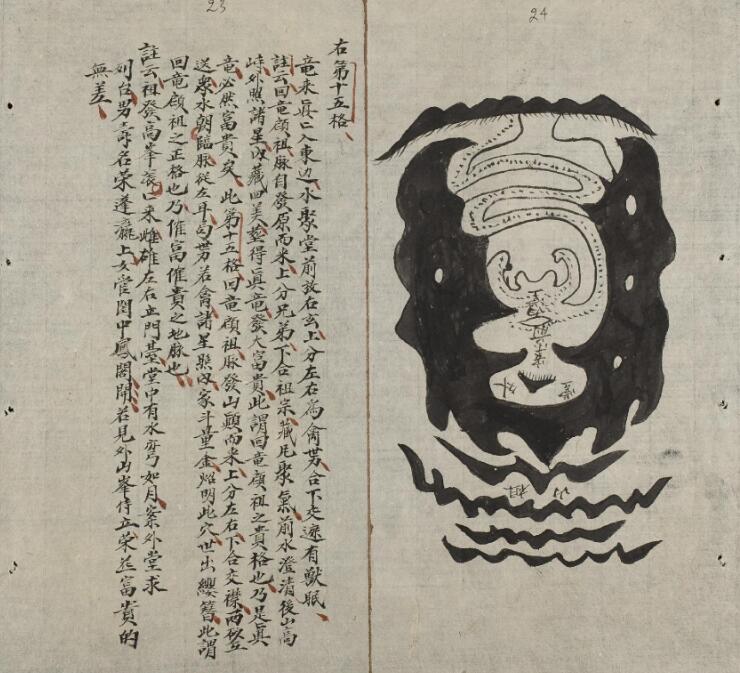 23
右第十五格
竜来入東边水聚堂前放右玄上分左右為禽合下交有獣眠
註云回竜顧祖脉自發原而来上分兄弟下合祖宗藏聚氣前水澄清後山高
峙外照諸星收藏四美塟得眞竜發大富貴此謂回竜顧祖之貴格也乃是眞
竜必然富貴矣此第十五格回竜顧祖脉發山巔而来上分左右下合交襟两立
送衆水朝臨脉從左耳勾若禽諸星照收家斗量金炤明此穴世出纓簪此謂
回竜顧祖之正格也乃催富催貴之地脉也
註云祖發高峯滚〻来雌雄左右立門臺堂中有水弯如月案外堂求
列台男壽名荣蓬瀛上女閨中鳳閣開若見外山峯侍立荣並富貴的
無差
24
外堂
祖山